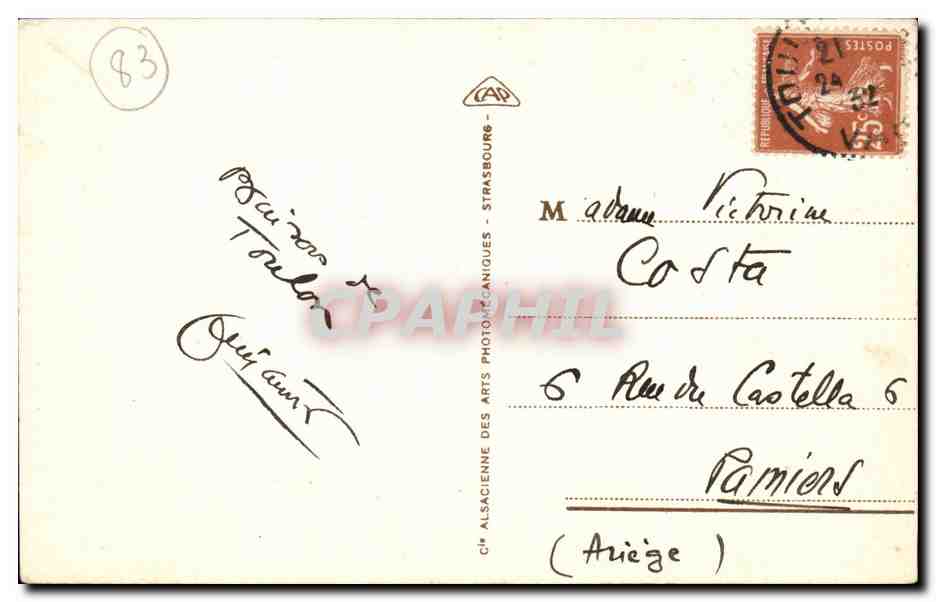 83
CAP
RÉPUBLIQUE FRANÇAISE
POSTES
25c
TOUL
21
24
32
VAR
Baisers de
Toulon
Madame Victorine
Costa
6 Rue du Castella 6
Pamiers
(Ariège)
Cie ALSACIENNE DES ARTS PHOTOMÉCANIQUES - STRASBOURG -
CPAPHIL